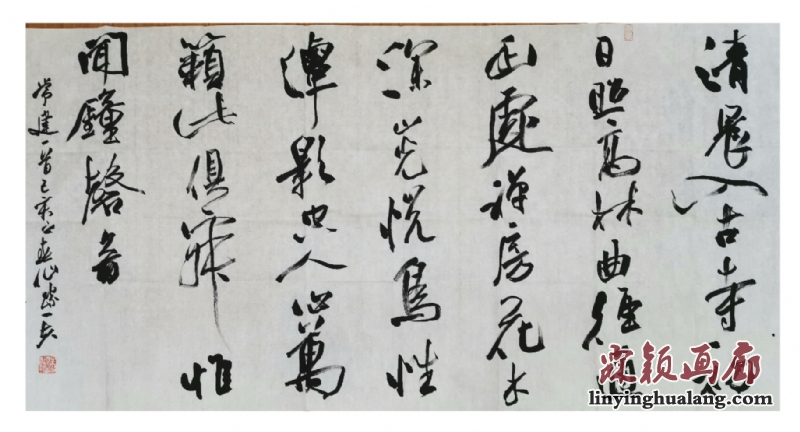 清晨入古寺初
日照高林曲徑通
幽處禪房花木
深山光悦鳥性
潭影空人心萬
籟此俱寂惟
聞鐘磬音
常建一首己亥
霖颖画廊
linyinghualang.com